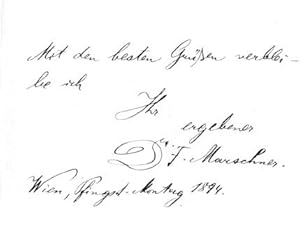 Mit den besten Grüßen verblei-
be ich
Ihr
ergebener
Dr. F. Marschner.
Wien, Pfingst-Montag 1894.